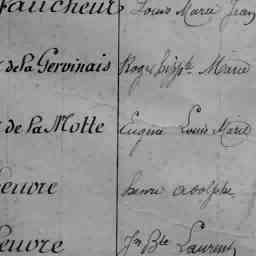 Faucheur Louis Marie Jean
de la Gervinais Roger hippte Marie
de la Motte Eugène Louis Marie
euvre henri adolphe
euvre Jn Bte Laurent